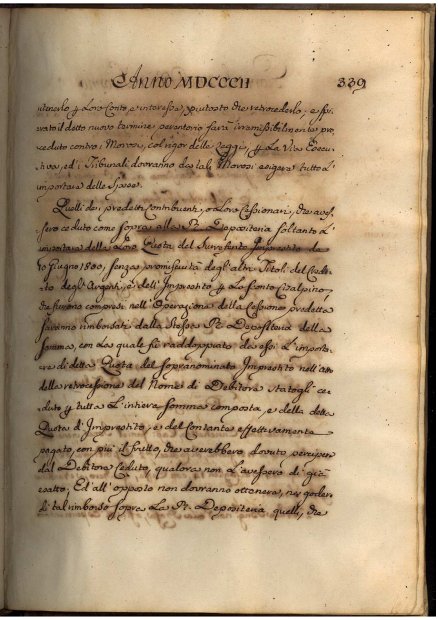 Anno MDCCCII 339
tenerlo p Loro Conto, e interesse, piutosto che retrocederlo, e spi-
rato il detto nuovo termine perentorio sarà irremissibilmente pro-
ceduto contro i Morosi, col rigor delle Leggi, p La Via Esecu-
tiva, ed i Tribunali dovranno da tali Morosi esigere tutto l'
importare delle Spese.
Quelli dei predetti Contribuenti, o Loro Cessionari, che aves-
sero ceduto come sopra alla R. Depositeria soltanto L'
importare della Loro Quota del Surriferito Imprestito de
10 Giugno 1800, senza promiscuità degli altri Titoli del
degl' Argenti, e dell' Imprestito p Le Conto Cisalpino,
che furono compresi nell' Operazione della Cessione predetta
saranno rimborsati dalla Stessa R. Depositeria della
Somma, con La quale fu raddoppiato da essi L'import-
are di detta Quota del Soprano minato Imprestito nell' Atto
della retrocessione del Nome di Debitore Statogli ce-
duto p tutta L'intiera Somma composta, e della detta
Quota d' Imprestito, e del Contante effettivamente
pagato, con più il frutto, che averebbero dovuto percipere
dal Debitore Ceduto, qualora non L'avessero di già
esatto; Ed all' opposto non dovranno ottenere, ne goder
di tal rimborso sopra La R. Depositeria quelli, che